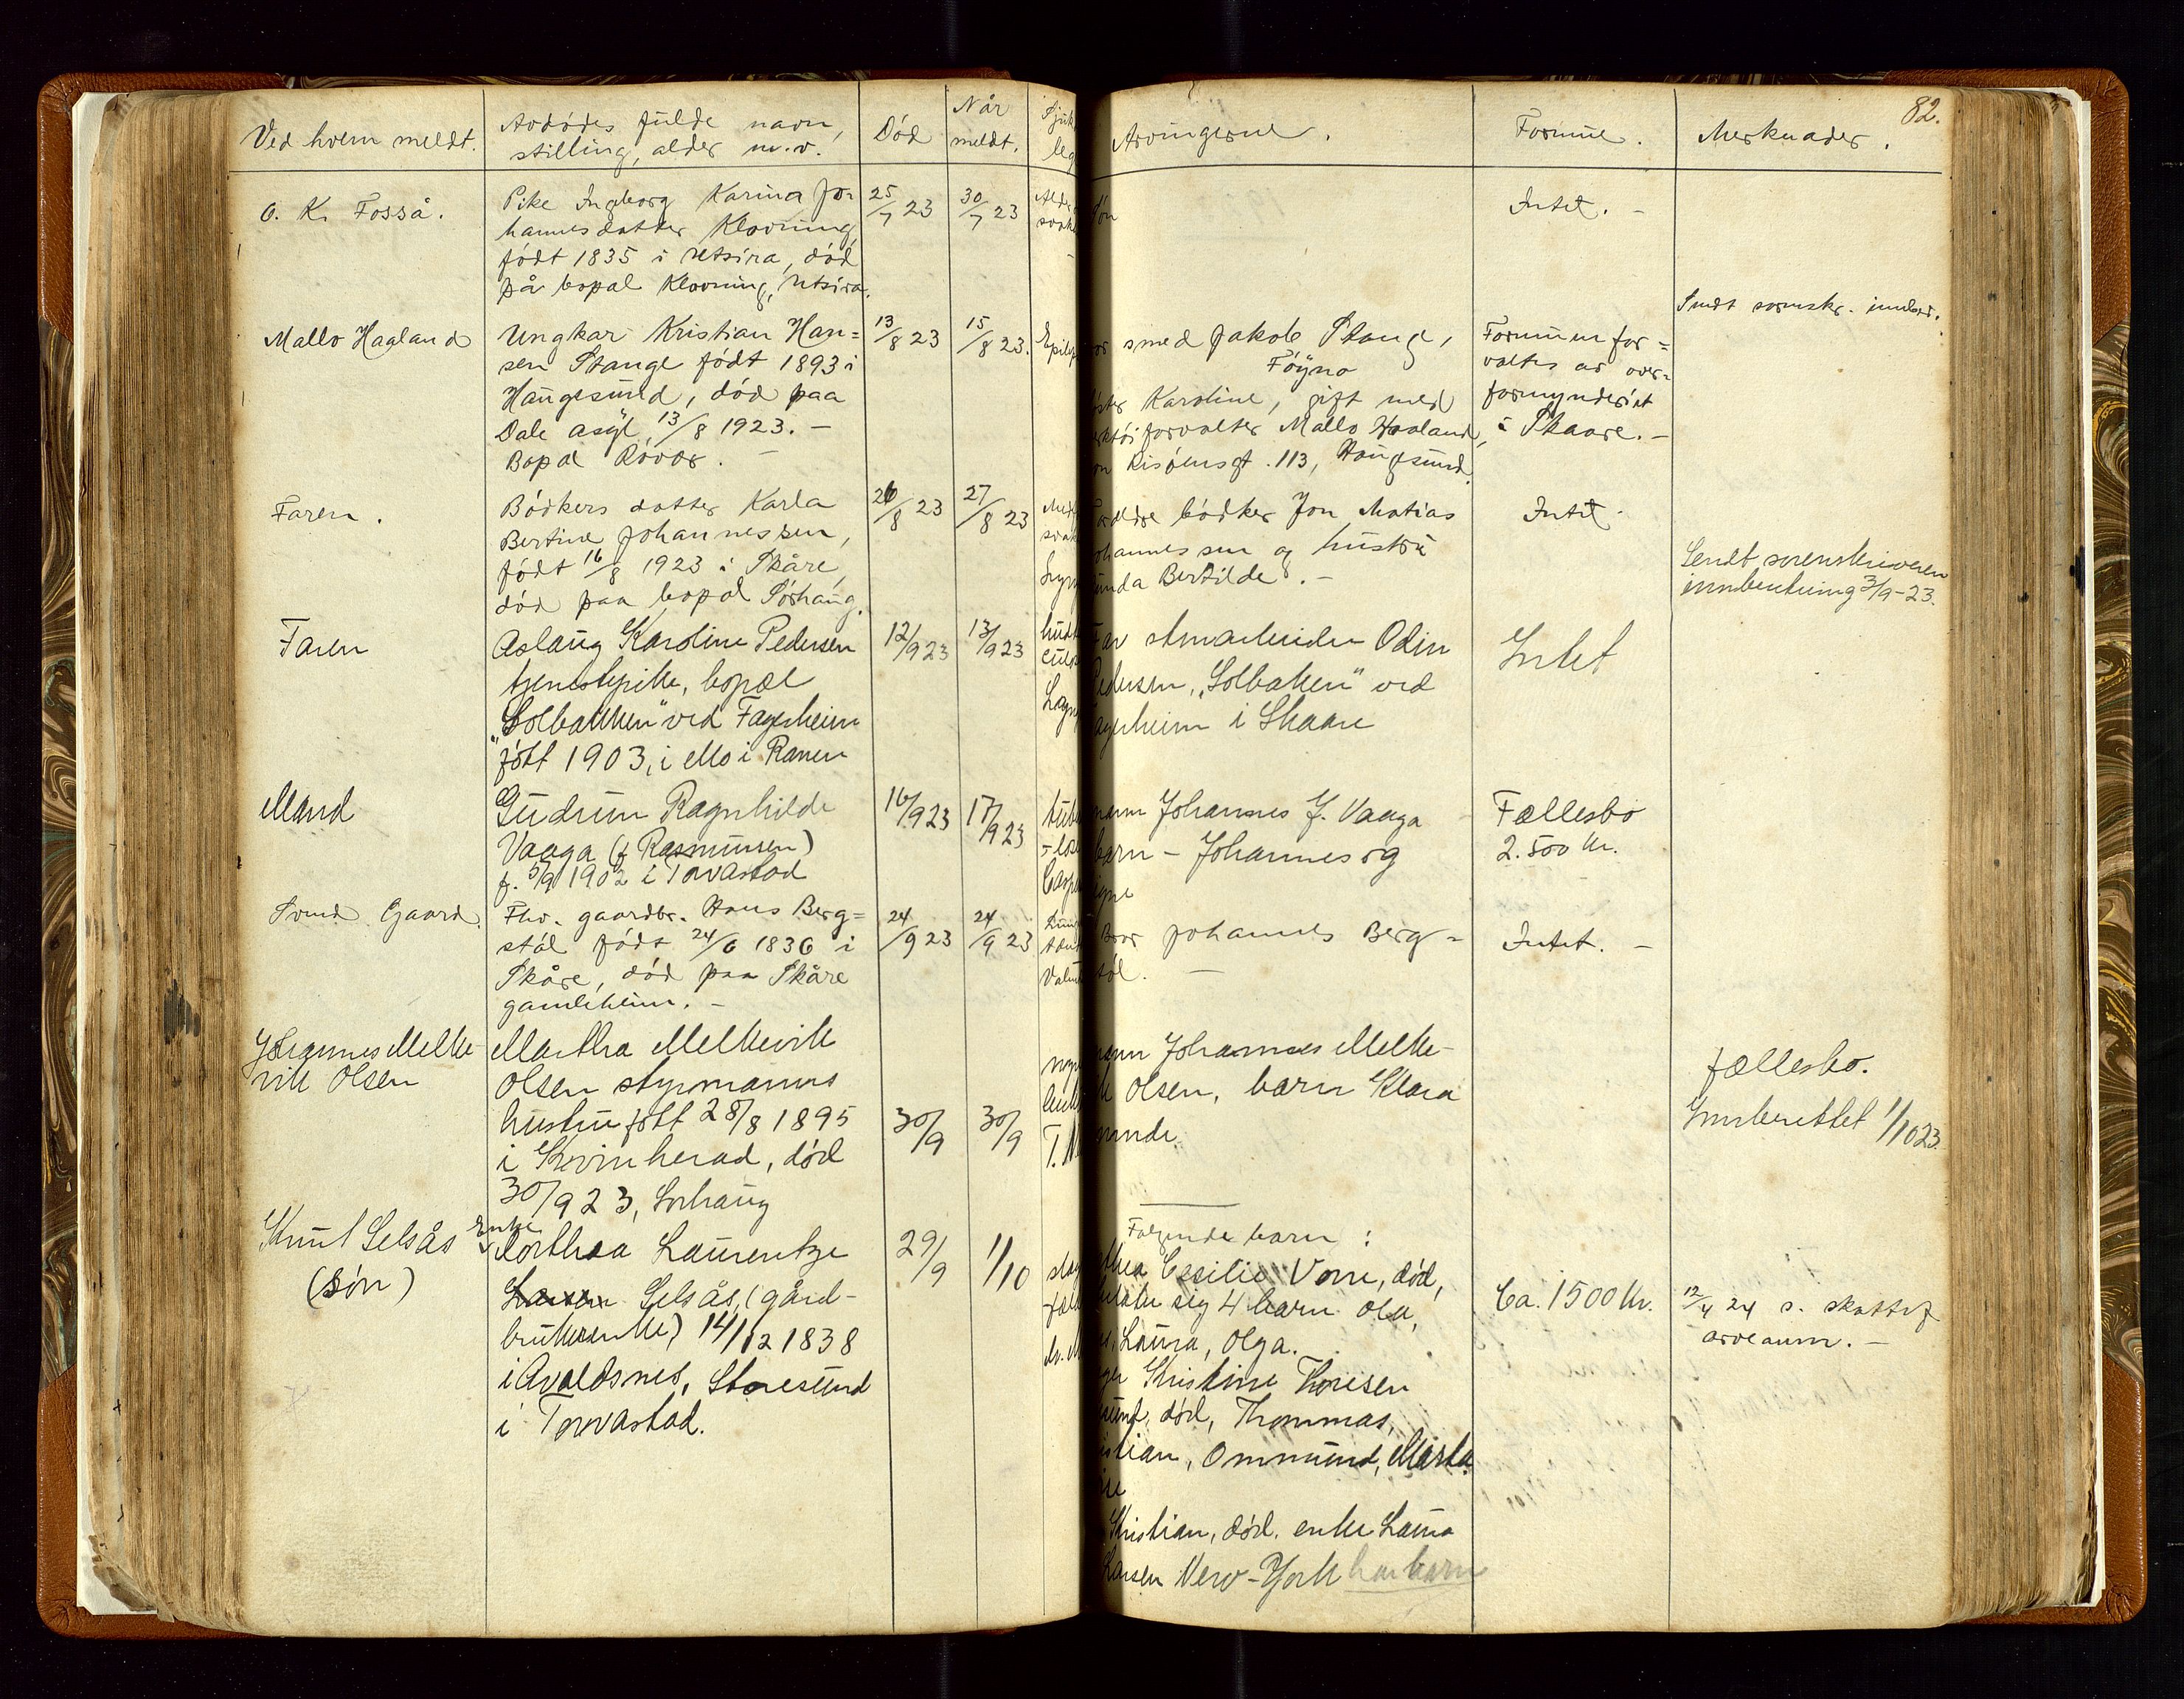 82.
Ved hvem meldt.
Avdødes fulde navn,
stilling, alder m.v.
Død
Når
meldt.
Arvingerne.
Formue.
Merknader.
O. K. Fosså.
Pike Ingborg Karina Jo-
hannesdatter Klovning
født 1835 i Utsira, død
på bopæl Klovning, Utsira.
25/7 23
30/7 23
Intet. -
Mallo Haaland
Ungkar Kristian Han=
sen Stange født 1893 i
Haugesund, død paa
Dale asyl 13/8 1923. -
Bopæl Røvær. -
13/8 23
15/8 23.
smed Jakob Stange,
Føyno
Karoline, gift med
forvalter Mallo Haaland,
Risøensgt. 113, Haugesund.
Formuen for=
valtes av over=
formynderiet
i Skaare. -
Sendt sorenskr. innber.
Faren.
Bødkers datter Karla
Bertine Johannessen,
født 16/8 1923 i Skåre,
død paa bopæl Sørhaug.
26/8 23
27/8 23
bødker Jon Matias
og hustru
Bertilde. -
Intet.
Sendt sorenskriveren
innberetning 3/9-23.
Faren
Aslaug Karoline Pedersen
tjenestepike, bopæl
"Solbakken" ved Fagerheim
født 1903, i Mo i Ranen
12/9 23
13/9 23
Far stuearbeider Odin
Pedersen, "Solbakken" ved
Fagerheim i Skaare
Intet
Mand
Gudrun Ragnhilde
Vaaga (f Rasmussen)
f. 5/9 1902 i Torvastad
16/9 23
17/9 23
mann Johannes J. Vaaga
barn - Johannes og
Fællesbo
2.500 kr.
Svend Gaard.
Fhv. gaardbr. Hans Berg=
støl født 24/6 1836 i
Skåre, død paa Skåre
gamleheim. -
24/9 23
24/9 23
Bror Johannes Berg=
støl. -
Intet. -
Johannes Melke-
vik Olsen
Martha Melkevik
Olsen styrmanns
hustru født 28/8 1895
i Kvinherad, død
30/9 23, Sørhaug
30/9
30/9
mann Johannes Melke-
Olsen, barn Klara
fællesbo.
Innberettet 1/10 23.
Knut Selsås
(søn)
Enke
Dorthea Laurentze
Larsen Selsås, (gård-
brukerenke) 14/12 1838
i Avaldsnes, Storesund
i Torvastad.
29/9
1/10
Følgende barn:
Cecilie Vorre, død,
sig 4 barn Ola,
Laura, Olga.
Kristine Thorsen
død, Thommas,
Ommund, Marta
Kristian, død. enke Laura
Larsen New-York har barn
Ca. 1500 kr.
12/4 24 s. skattef
arveanm. -